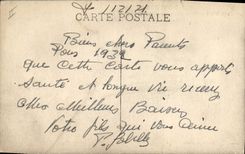 CARTE POSTALE
Biens chers Parents
Pour 1932
que cette Carte vous apporte
Santé et longue vie recevez
Mes Meilleurs Baisers
Votre fils qui vous aime